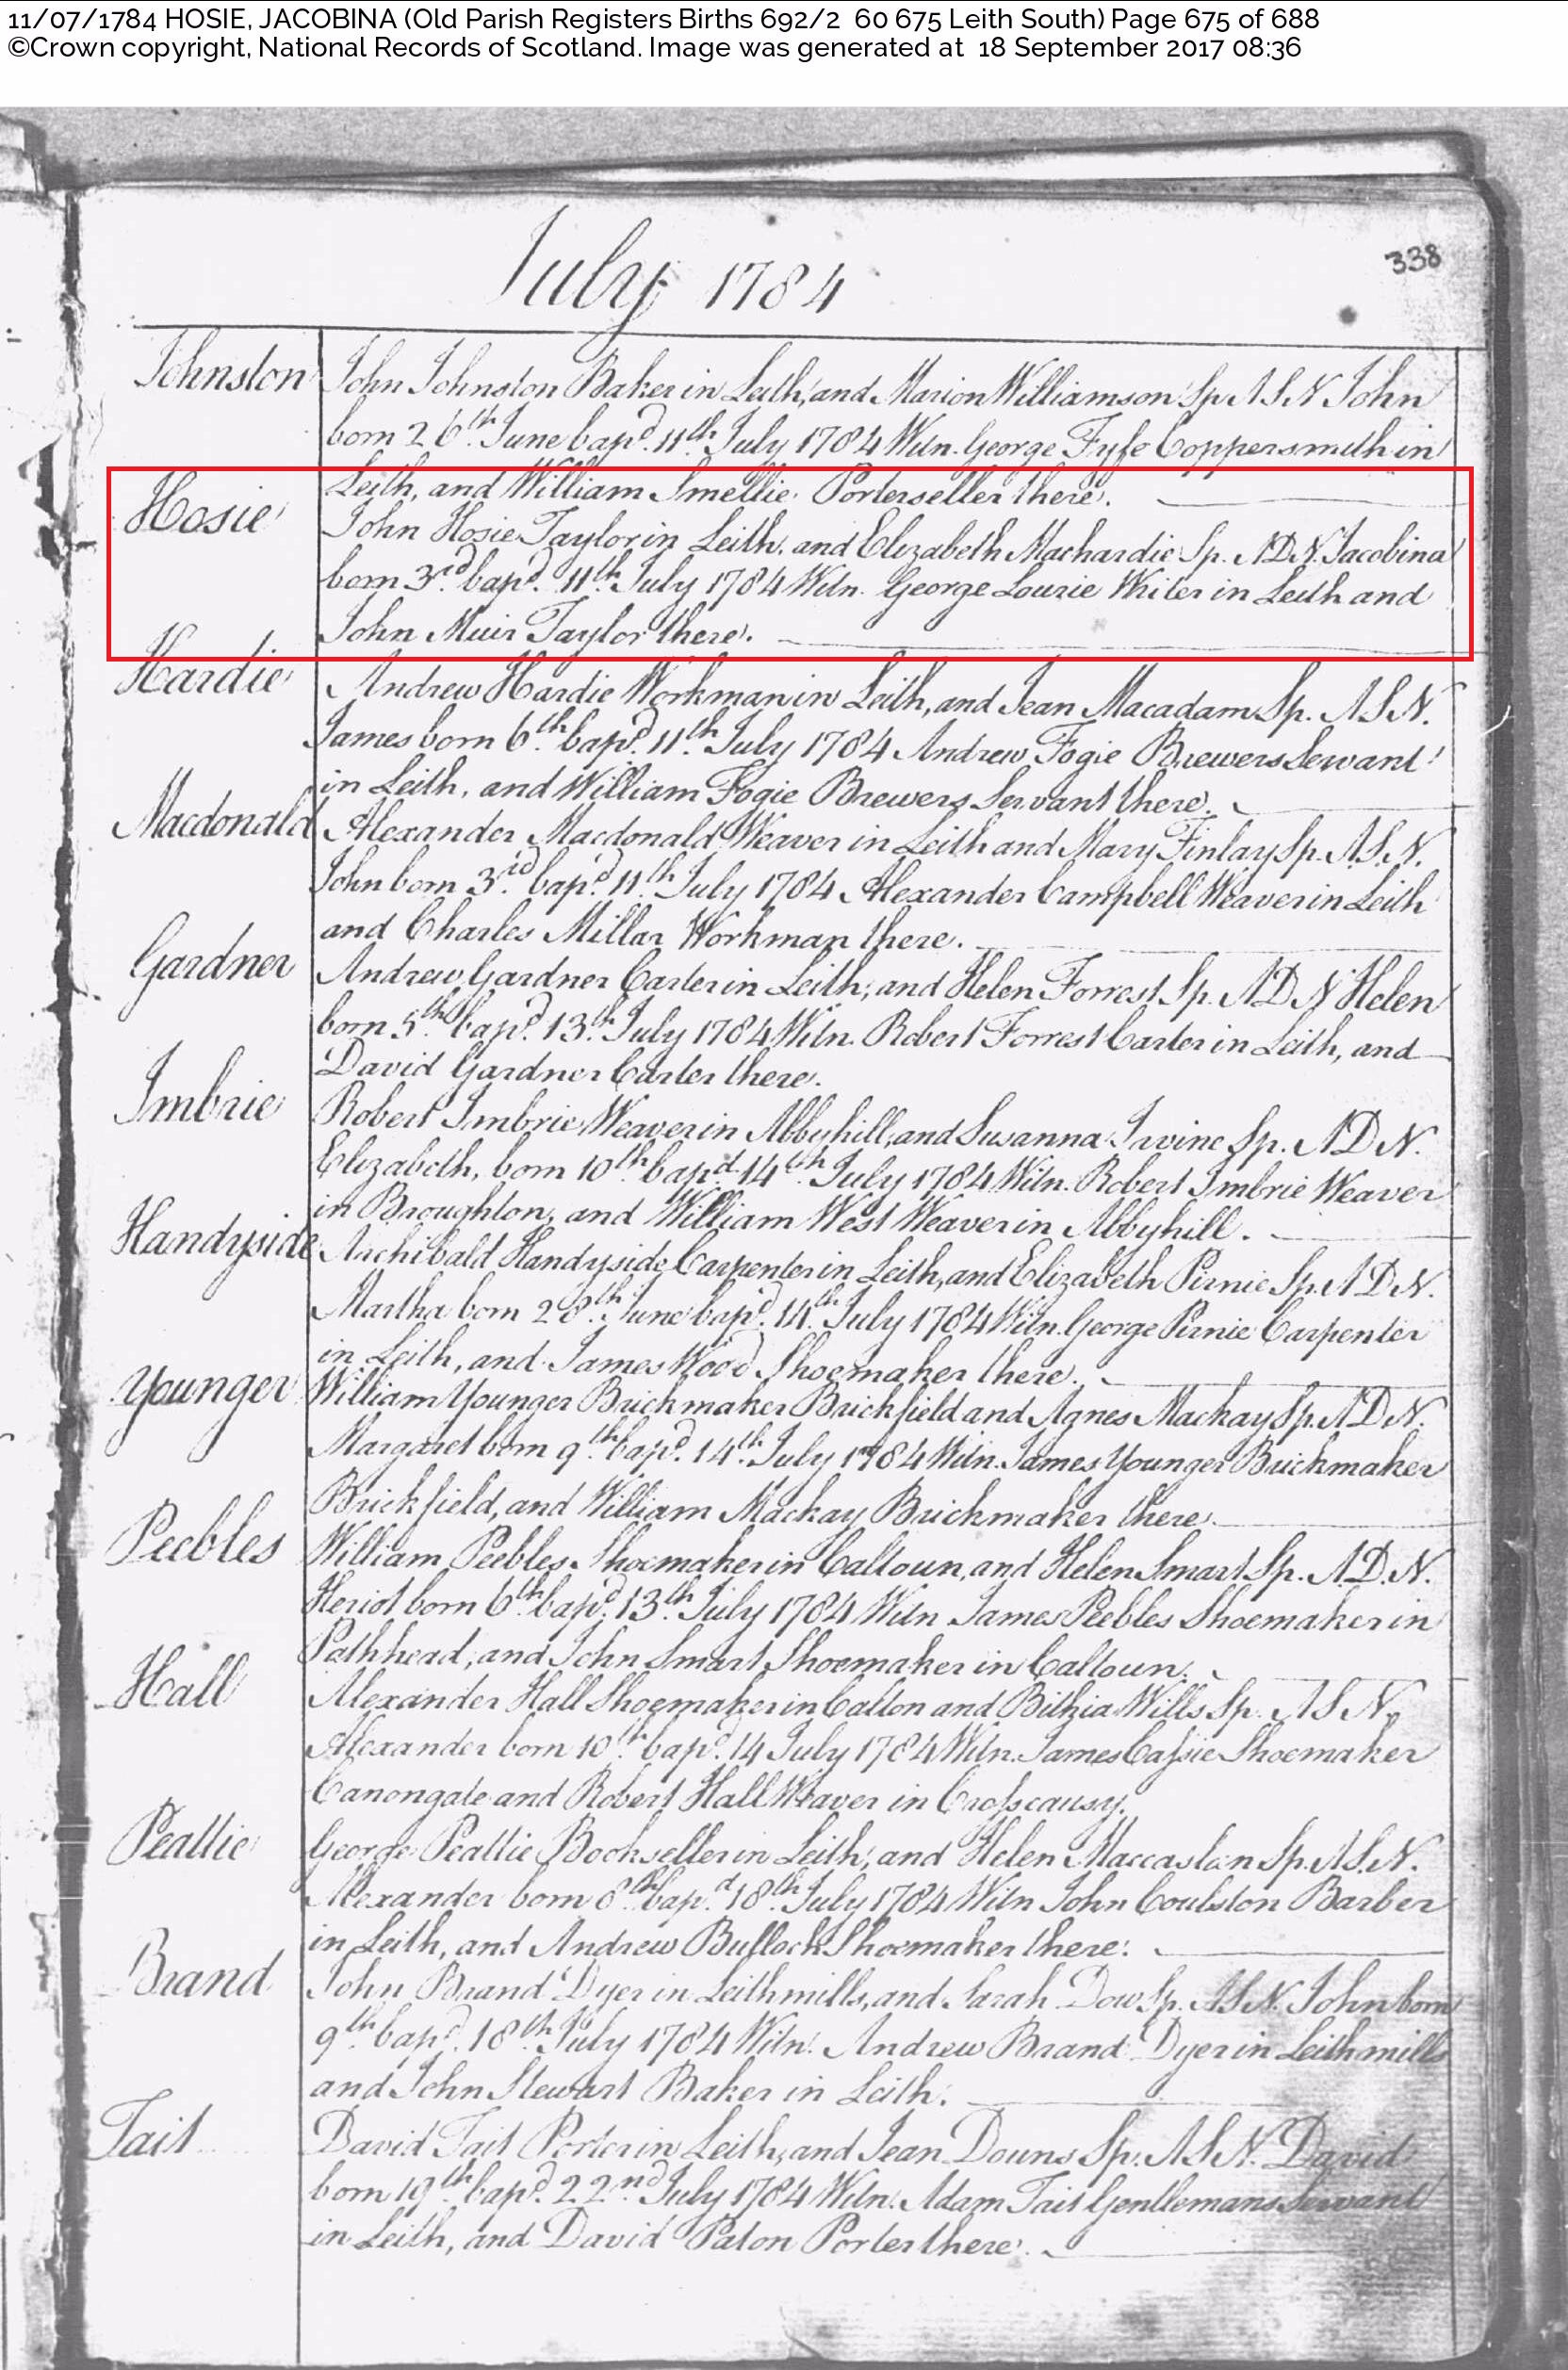 11/07/1784 HOSIE, JACOBINA (Old Parish Registers Births 692/2 60 675 Leith South) Page 675 of 688
©Crown copyright, National Records of Scotland. Image was generated at 18 September 2017 08:36
338
July 1784
Johnston
John Johnston Baker in Leith, and Marion Williamson Sp. A S N John
born 26th June bapd. 11th July 1784 Witn. George Fyfe Coppersmith in
Leith, and William Smellie Porterseller there.
Hosie
John Hosie Taylor in Leith. and Elizabeth Machardie Sp. A D N Jacobina
born 3rd bapd. 11th July 1784 Witn. George Lourie Writer in Leith and
John Muir Taylor there.
Hardie
Andrew Hardie Workman in Leith, and Jean Macadam Sp. A S N.
James born 6th bapd. 11th July 1784 Andrew Fogie Brewers Servant
in Leith, and William Fogie Brewers Servant there.
Macdonald
Alexander Macdonald Weaver in Leith and Mary Finlay Sp. A S. N.
John born 3rd bapd. 11th July 1784 Alexander Campbell Weaver in Leith
and Charles Millar Workman there.
Gardner
Andrew Gardner Carter in Leith, and Helen Forrest Sp. A D N Helen
born 5th bapd. 13th July 1784 Witn. Robert Forrest Carter in Leith, and
David Gardner Carter there.
Imbrie
Robert Imbrie Weaver in Abbyhill, and Susanna Irvine Sp. A D N.
Elizabeth, born 10th bapd. 14th July 1784 Witn. Robert Imbrie Weaver
in Broughton, and William West Weaver in Abbyhill.
Handyside
Archibald Handyside Carpenter in Leith, and Elizabeth Pirnie Sp. A D N.
Martha born 28th June bapd. 14th July 1784 Witn. George Pirnie Carpenter
in Leith, and James Wood Shoemaker there.
Younger
William Younger Brickmaker Brickfield and Agnes Mackay Sp. A D N.
Margaret born 9th bapd. 14th July 1784 Witn. James Younger Brickmaker
Brickfield, and William Mackay Brickmaker there.
Peebles
William Peebles Shoemaker in Caltoun, and Helen Smart Sp. A. D. N.
Heriot born 6th bapd. 13th July 1784 Witn James Peebles Shoemaker in
Pathhead, and John Smart Shoemaker in Caltoun.
Hall
Alexander Hall Shoemaker in Calton and Bithia Wills Sp. A S N.
Alexander born 10th bapd. 14 July 1784 Witn. James Cassie Shoemaker
Canongate and Robert Hall Weaver in Crosscausy.
Peattie
George Peattie Bookseller in Leith, and Helen Maccaslan Sp. A S. N.
Alexander born 8th bapd 18th July 1784 Witn John Coulston Barber
in Leith, and Andrew Bullock Shoemaker there.
Brand
John Brand Dyer in Leithmills, and Sarah Dow Sp. A S N. John born
9th bapd. 18th July 1784 Witn. Andrew Brand Dyer in Leithmills
and John Stewart Baker in Leith.
Tait
David Tait Porter in Leith, and Jean Douns Sp. A S N. David
born 19th bapd. 22nd July 1784 Witn. Adam Tait Gentlemans Servant
in Leith, and David Paton Porter there.